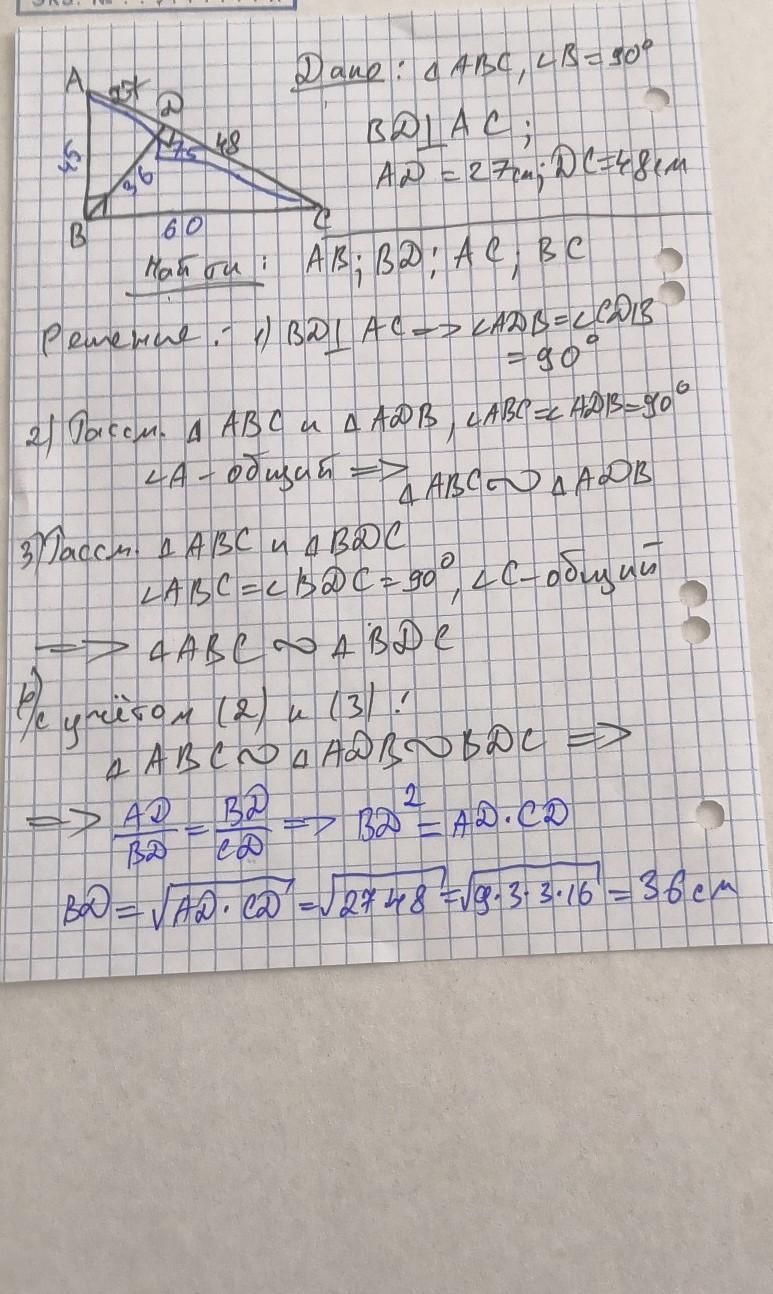 Дано: △ABC, ∠B = 90°
A 27 D
BD⊥AC;
45 36 75 48
AD = 27см; DC=48см
B 60 C
Найти: AB; BD; AC; BC
Решение: 1) BD⊥AC => ∠ADB=∠CDB
= 90°
2) Рассм. △ABC и △ADB, ∠ABC=∠ADB=90°
∠A - общий => △ABC ∾ △ADB
3) Рассм. △ABC и △BDC
∠ABC=∠BDC=90°, ∠C-общий
=> △ABC ∾ △BDC
с учётом (2) и (3):
△ABC ∾ △ADB ∾ BDC =>
=> AD/BD = BD/CD => BD² = AD·CD
BD = √AD·CD = √27·48 = √9·3·3·16 = 36см